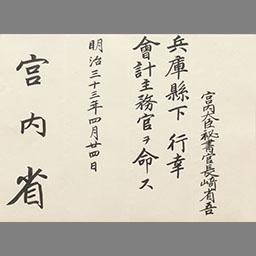 宮内大臣秘書官長﨑省吾
兵庫縣下行幸
會計主務官ヲ命ス
明治三十三年四月廿四日
宮内省